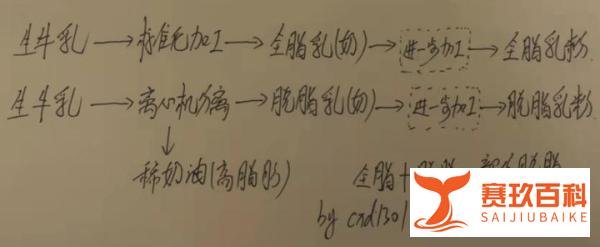 生牛乳→标准化加工→全脂乳(奶)→进一步加工→全脂乳粉
生牛乳→离心机分离→脱脂乳(奶)→进一步加工→脱脂乳粉
↓
稀奶油(高脂肪)
全脂+
by cxd1301
赛玖百科
SAIJIUBAIKE